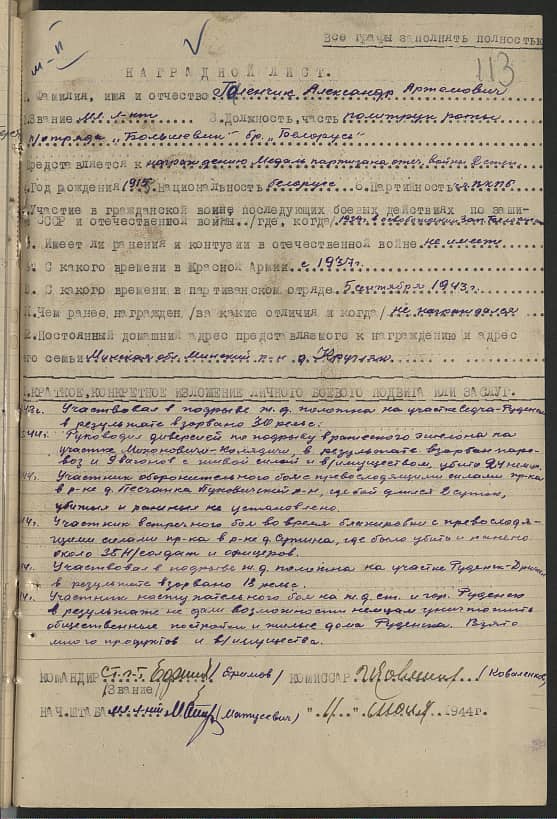 Все графы заполнять полностью
113
НАГРАДНОЙ ЛИСТ.
Фамилия, имя и отчество Александр Артамович
Звание мл. л-нт 3.Должность, часть политрук роты
п/отряда "Большевик" бр. "Беларусь"
представляется к награждению Медаль партизана отеч. войны 2 степ.
Год рождения 1915 Национальность белорусс 6.Партийность
Участие в гражданской войне, последующих боевых действиях по защи-
СССР и отечественной войны../где, когда/
Имеет ли ранения и контузии в отечественной войне не имеет
С какого времени в Красной Армии с 1937г.
С какого времени в партизанском отряде 5 сентября 1943г.
Чем ранее награжден /за какие отличия и когда/ не награждался
Постоянный домашний адрес представляемого к награждению и адрес
его семьи Минская обл. Минский р-н д.
КРАТКОЕ, КОНКРЕТНОЕ ИЗЛОЖЕНИЕ ЛИЧНОГО БОЕВОГО ПОДВИГА ИЛИ ЗАСЛУГ.
Участвовал в подрыве ж.д. полотна на участке
в результате взорвано 30 рельс.
Руководил диверсией по подрыву вражеского эшелона на
участке Михановичи-Колядичи, в результате взорван паро-
воз и 9 вагонов с живой силой и в/имуществом, убито 24 немц.
Участник оборонительного боя с превосходящими силами пр-ка
в р-не д. Песчанка Пуховичский р-н, где бой длился 2 суток,
убитых и раненых не установлено.
Участник встречного боя во время блокировки с превосходя-
щими силами пр-ка в р-не д. где было убито и ранено
около 35 н/солдат и офицеров.
Участвовал в подрыве ж.д. полотна на участке Руденск-
в результате взорвано 13 рельс.
Участник наступательного боя на ж.д. ст. и гор. Руденск
в результате не дали возможности немцам уничтожить
общественные постройки и жилые дома Руденска. Взято
много продуктов и в/имущества.
КОМАНДИР ст. л-т /Ефимов/ КОМИССАР /Коваленко
/Звание/
НАЧ.ШТАБА мл. л-нт /Матусевич/ "11" июля 1944г.